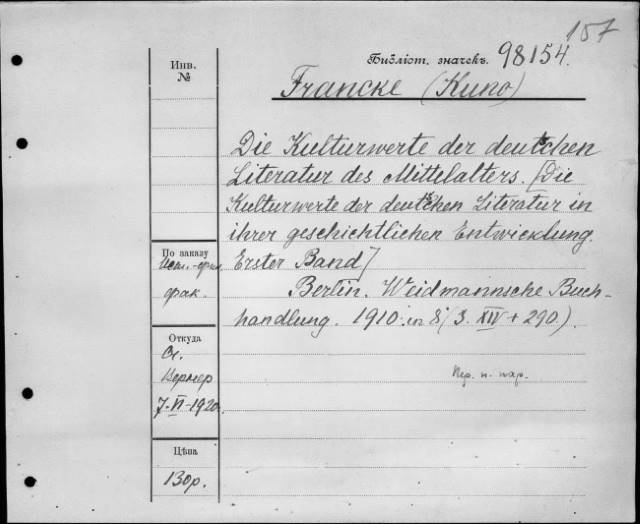 157
Библіот. значекъ. 98154.
Инв.
№
Francke (Kuno)
Die Kulturwerte der deutschen
Literatur des Mittelalters. [Die
Kulturwerte der deutschen Literatur in
ihrer geschichtlichen Entwicklung.
Erster Band]
Berlin. Weidmannsche Buch-
handlung. 1910. in 8 (3. XIV + 290.)
По заказу
Ист.-фил.
фак.
Откуда
Вернер
7-VI-1920
Пер. н. пар.
Цѣна
130р.